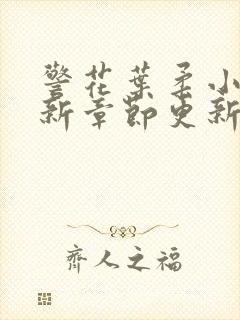 警花葉柔小
新章節更新
齊人之福